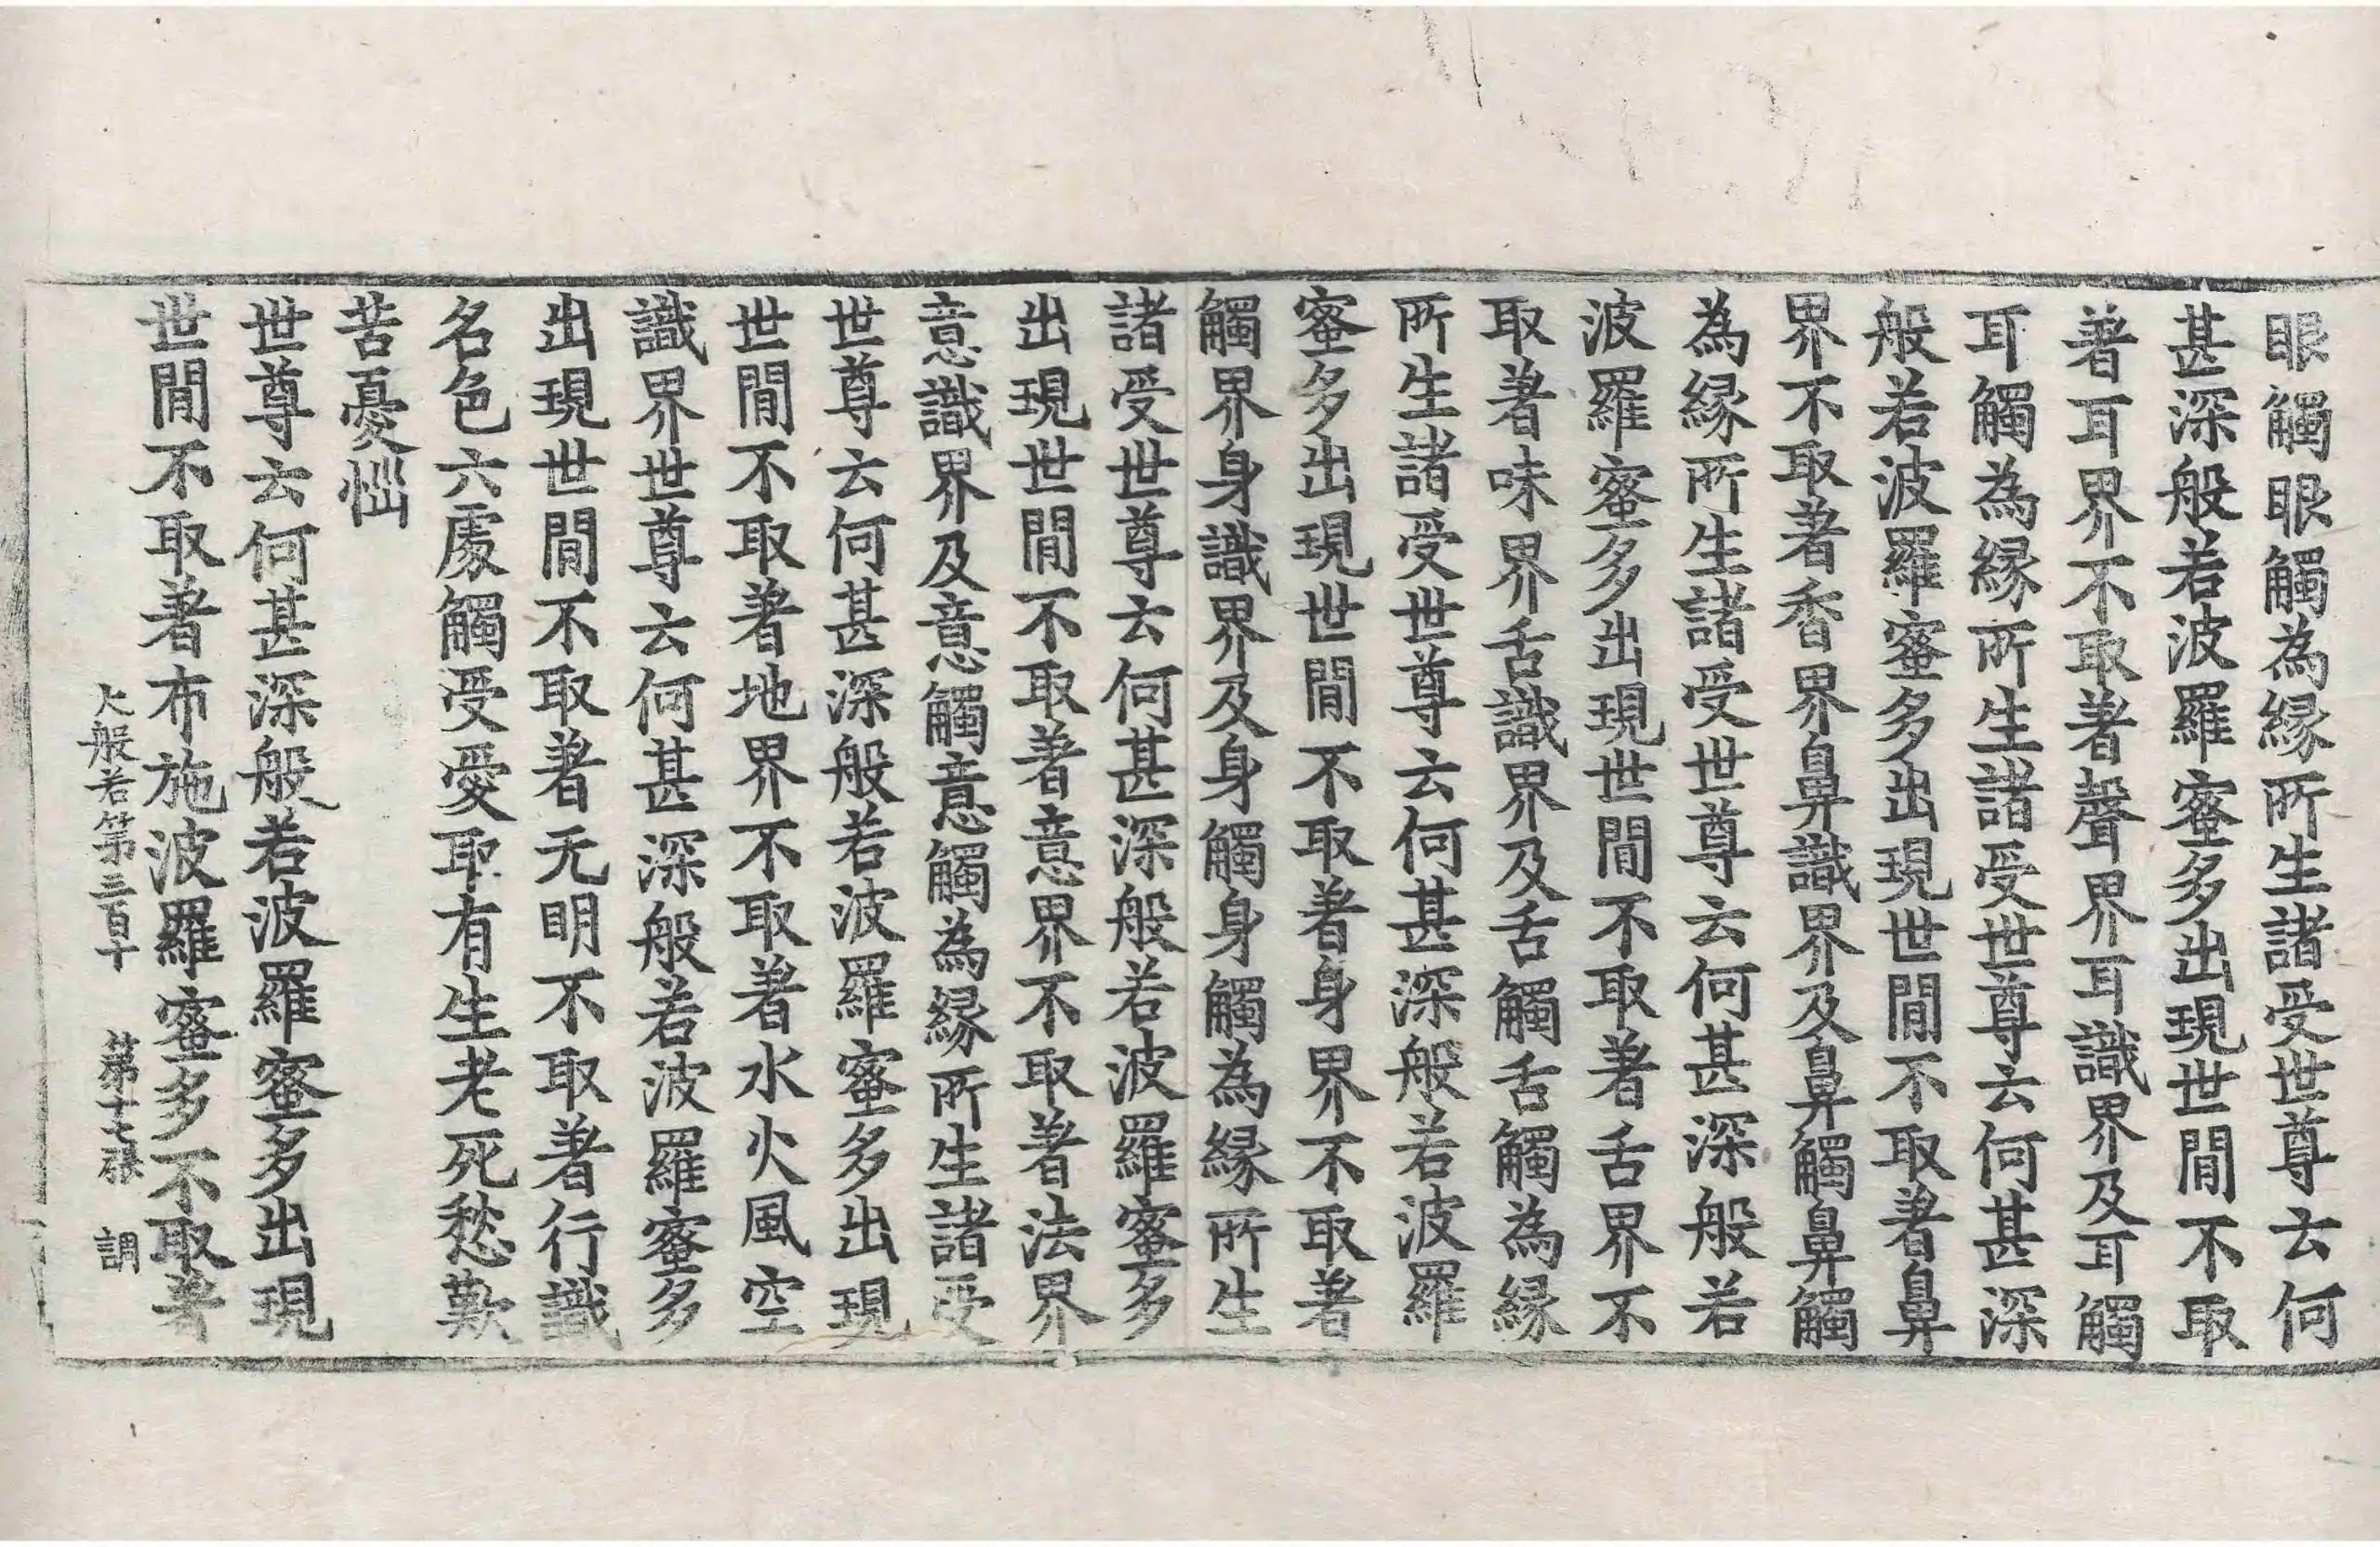 眼觸眼觸為縁所生諸受世尊云何
甚深般若波羅蜜多出現世閒不取
著耳界不取著聲界耳識界及耳觸
耳觸為縁所生諸受世尊云何甚深
般若波羅蜜多出現世閒不取著鼻
界不取著香界鼻識界及鼻觸鼻觸
為縁所生諸受世尊云何甚深般若
波羅蜜多出現世閒不取著舌界不
取著味界舌識界及舌觸舌觸為縁
所生諸受世尊云何甚深般若波羅
蜜多出現世閒不取著身界不取著
觸界身識界及身觸身觸為縁所生
諸受世尊云何甚深般若波羅蜜多
出現世閒不取著意界不取著法界
意識界及意觸意觸為縁所生諸受
世尊云何甚深般若波羅蜜多出現
世閒不取著地界不取著水火風空
識界世尊云何甚深般若波羅蜜多
出現世閒不取著无明不取著行識
名色六處觸受愛取有生老死愁歎
苦憂惱
世尊云何甚深般若波羅蜜多出現
世閒不取著布施波羅蜜多不取著
大般若第三百十 第十七張 調